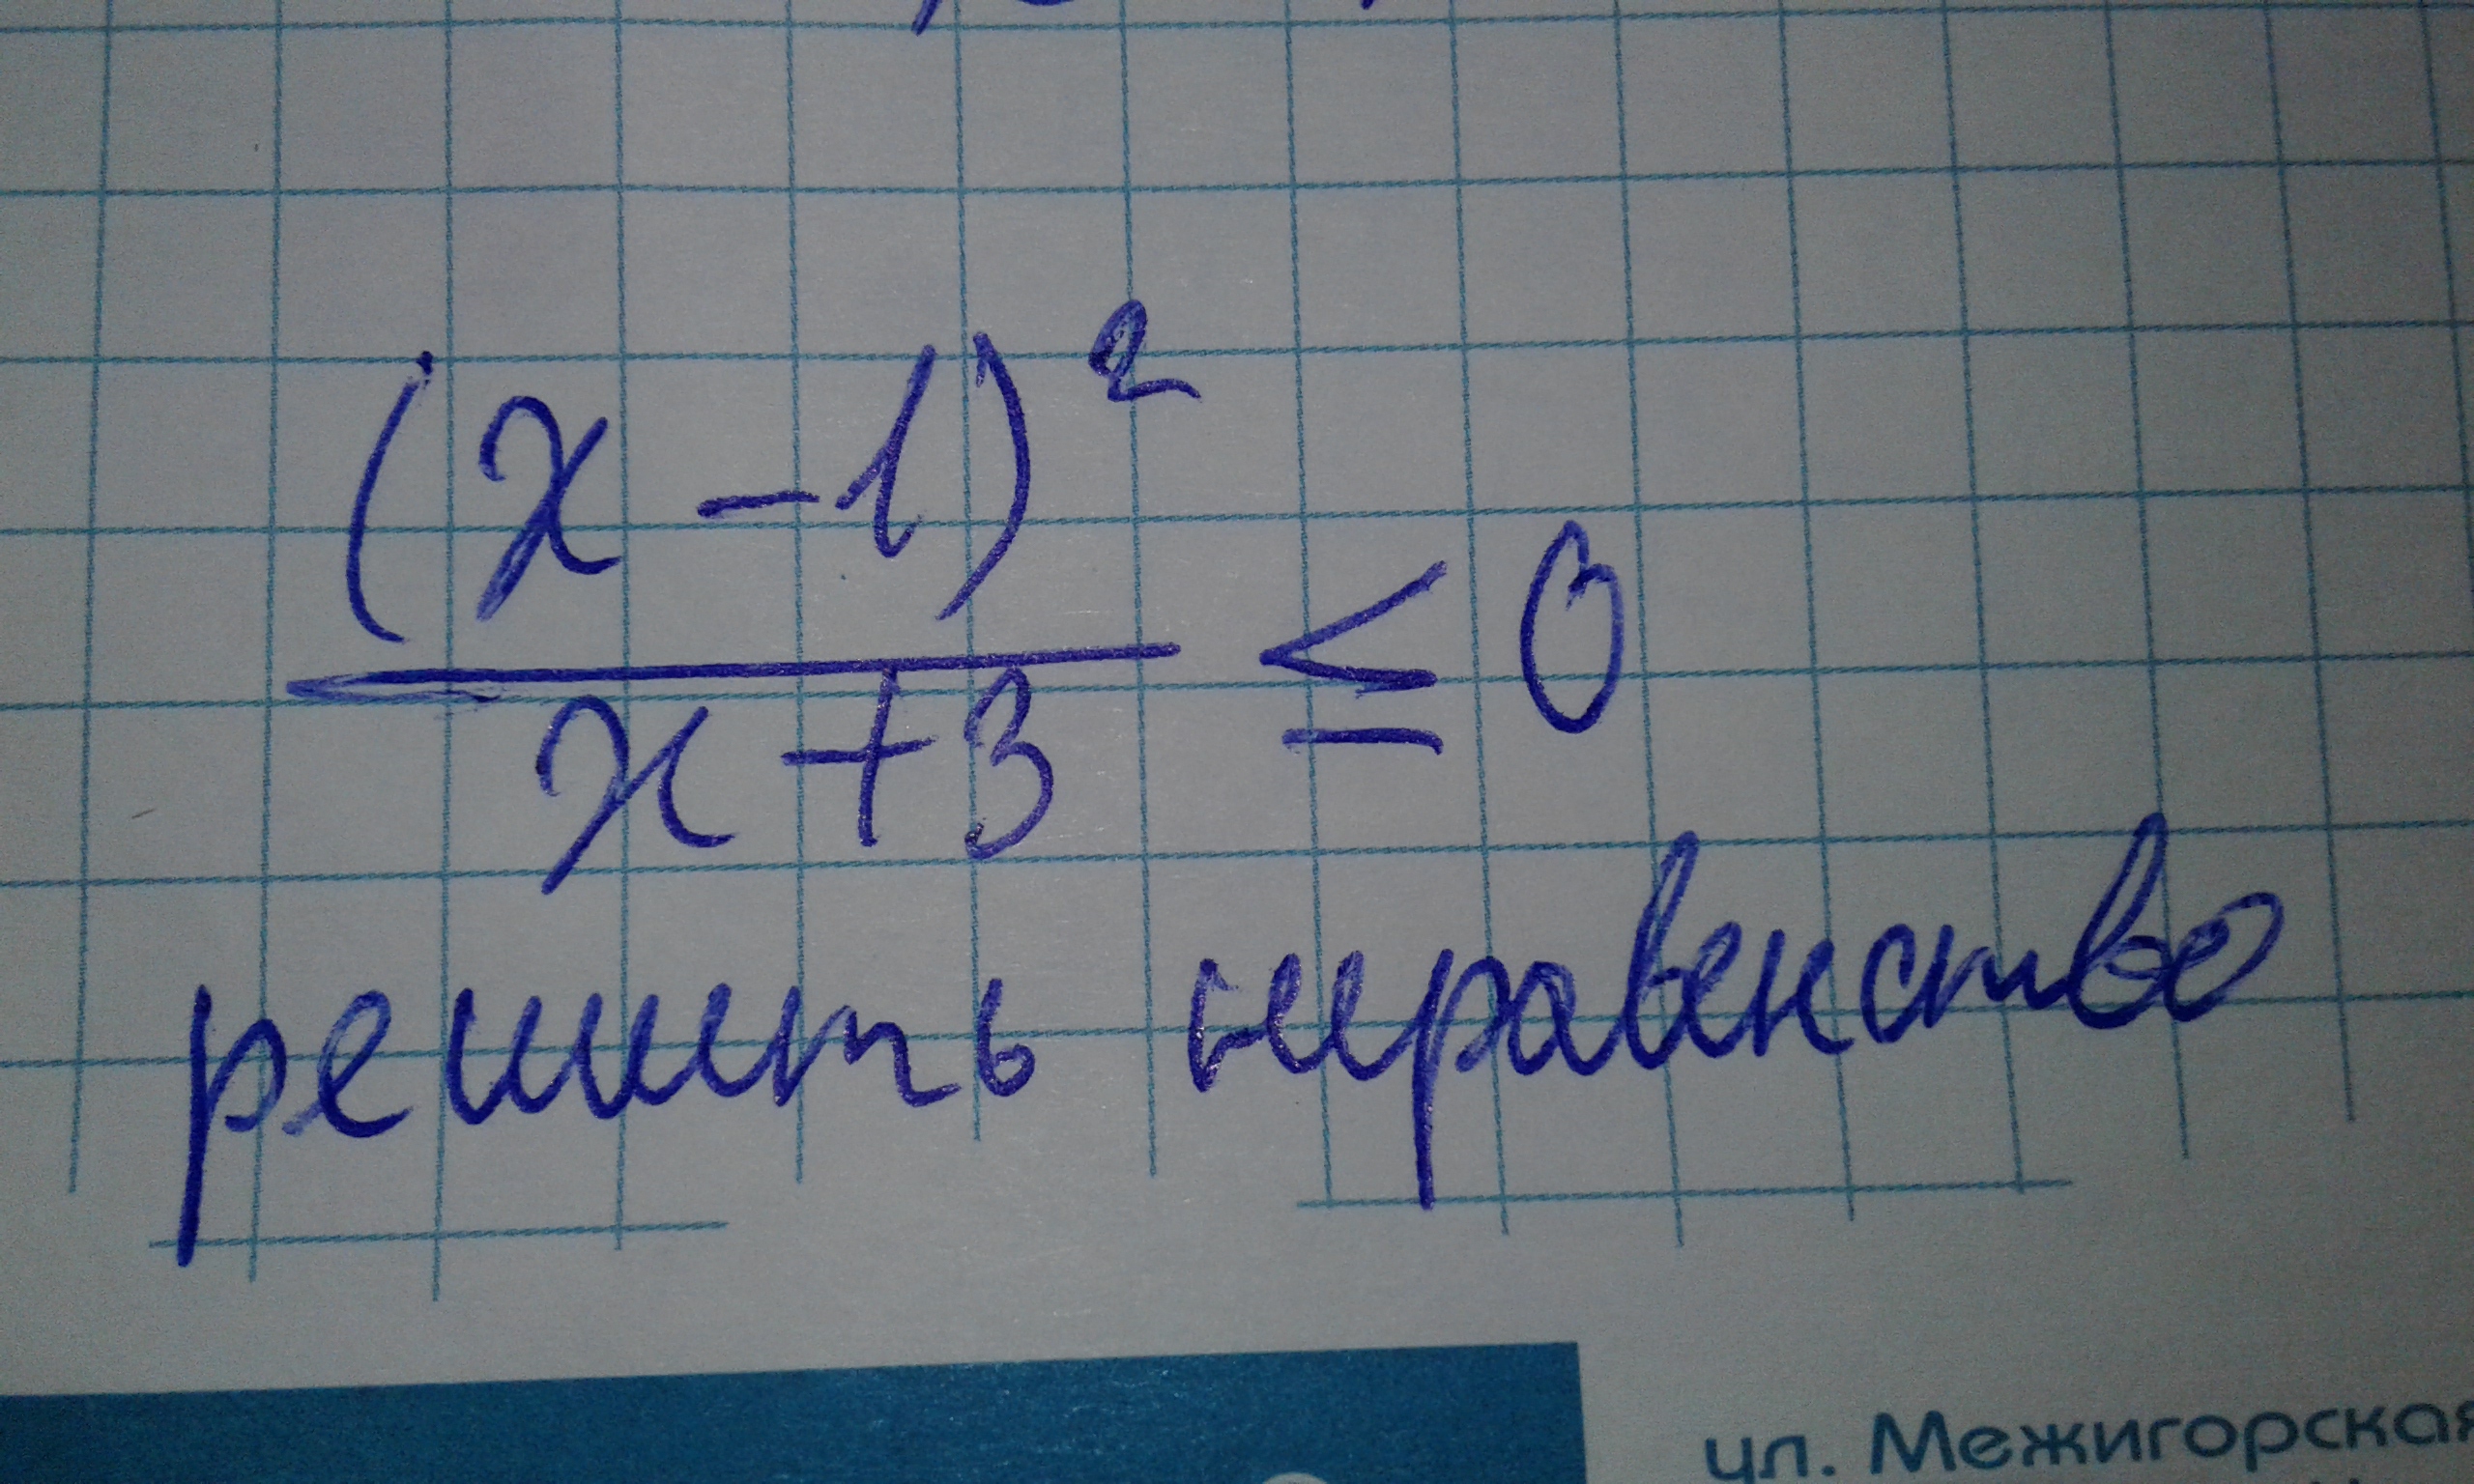 (x-1)²
―――― ≤ 0
x+3
решить неравенство
ул. Межигорская